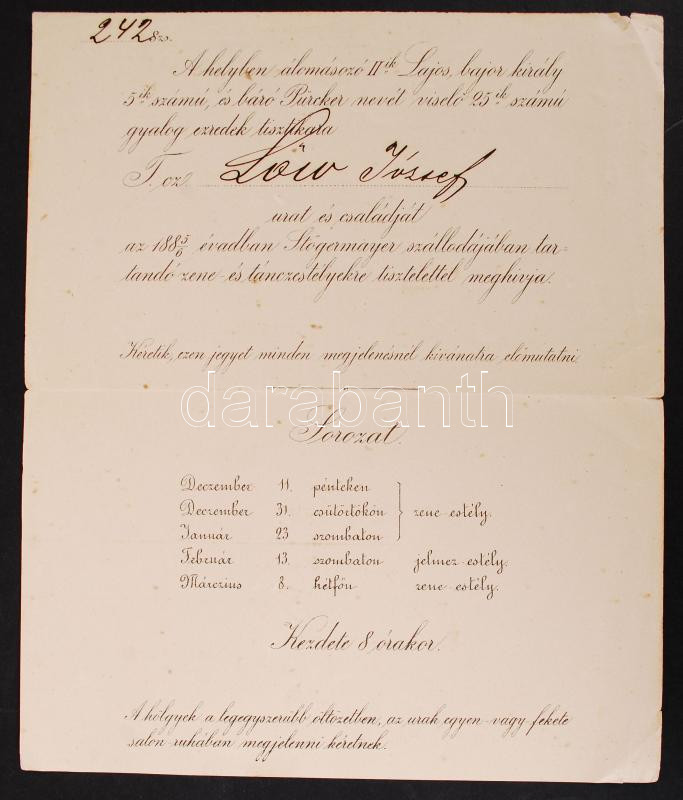 242 szs.
A helyben álomásozó II ik Lajos, bajor király
5 ik számú, és báró Pürcker nevét viselő 25 ik számú
gyalog ezredek tisztikara
T. cz. Lőw József
urat és családját
az 1885/6 évadban Stögermayer szállodájában tar-
tandó zene- és tánczestélyekre tisztelettel meghívja.
Kéretik, ezen jegyet minden megjelenésnél kivánatra előmutatni.
darabanth
Sorozat.
Deczember 11. pénteken
Deczember 31. csütörtökön zene-estély.
Január 23 szombaton
Február 13. szombaton jelmez-estély.
Márczius 8. hétfőn zene-estély.
Kezdete 8 órakor.
A hölgyek a legegyszerübb öltözetben, az urak egyen- vagy fekete
salon-ruhában megjelenni kéretnek.